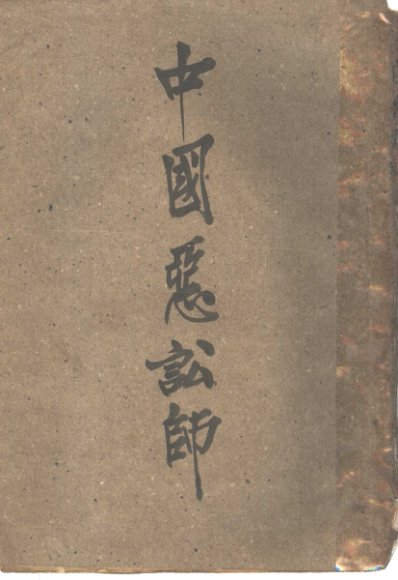 中國惡訟師